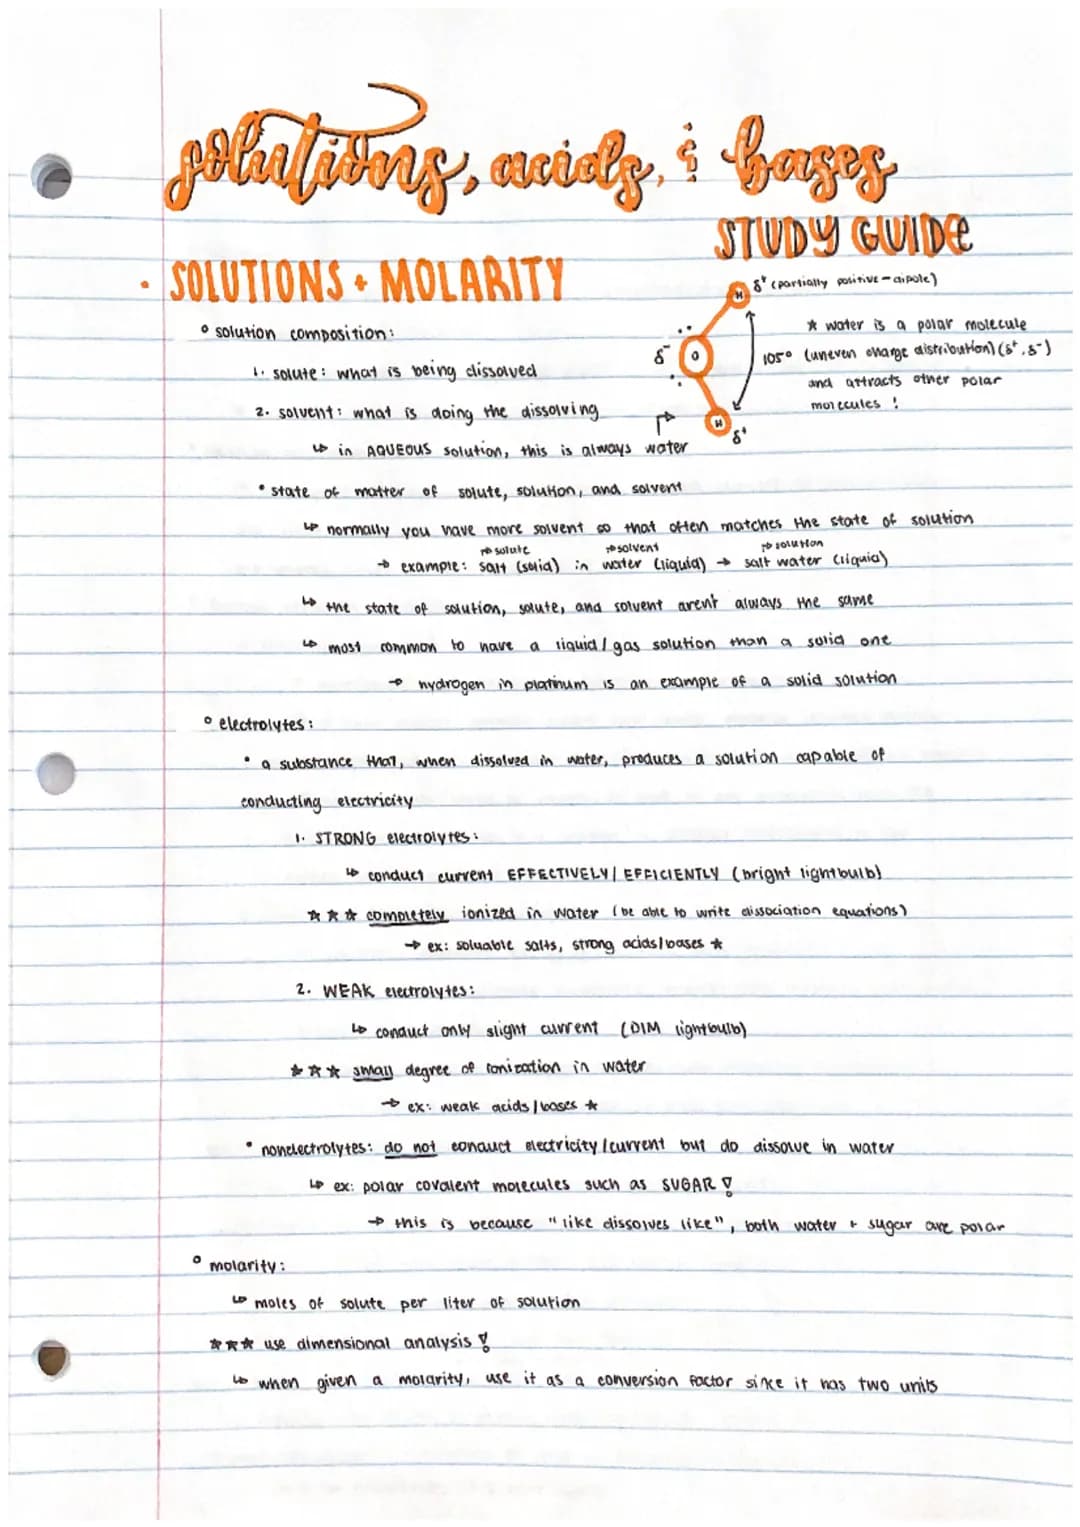 solutions, acids, & bases
STUDY GUIDE
• SOLUTIONS + MOLARITY
H δ+ (partially positive - dipole)
° solution composition:
★ water is a polar molecule
δ- O 105° (uneven charge distribution) (δ+, δ-)
1. solute: what is being dissolved
and attracts other polar
molecules !
2. solvent: what is doing the dissolving
H δ+
↳ in AQUEOUS solution, this is always water
• state of matter of solute, solution, and solvent
↳ normally you have more solvent so that often matches the state of solution
↱ solute ↱ solvent ↱ solution
→ example: salt (solid) in water (liquid) → salt water (liquid)
↳ the state of solution, solute, and solvent arent always the same
↳ most common to have a liquid/gas solution than a solid one
→ hydrogen in platinum is an example of a solid solution
° electrolytes:
• a substance that, when dissolved in water, produces a solution capable of
conducting electricity
1. STRONG electrolytes:
↳ conduct current EFFECTIVELY/EFFICIENTLY (bright lightbulb)
★★★ completely ionized in water (be able to write dissociation equations)
→ ex: soluable salts, strong acids/bases ★
2. WEAK electrolytes:
↳ conduct only slight current (DIM lightbulb)
★★★ small degree of ionization in water
→ ex: weak acids/bases ★
• nonelectrolytes: do not conduct electricity/current but do dissolve in water
↳ ex: polar covalent molecules such as SUGAR !
→ this is because "like dissolves like", both water + sugar are polar
° molarity:
↳ moles of solute per liter of solution
★★★ use dimensional analysis !
↳ when given a molarity, use it as a conversion factor since it has two units